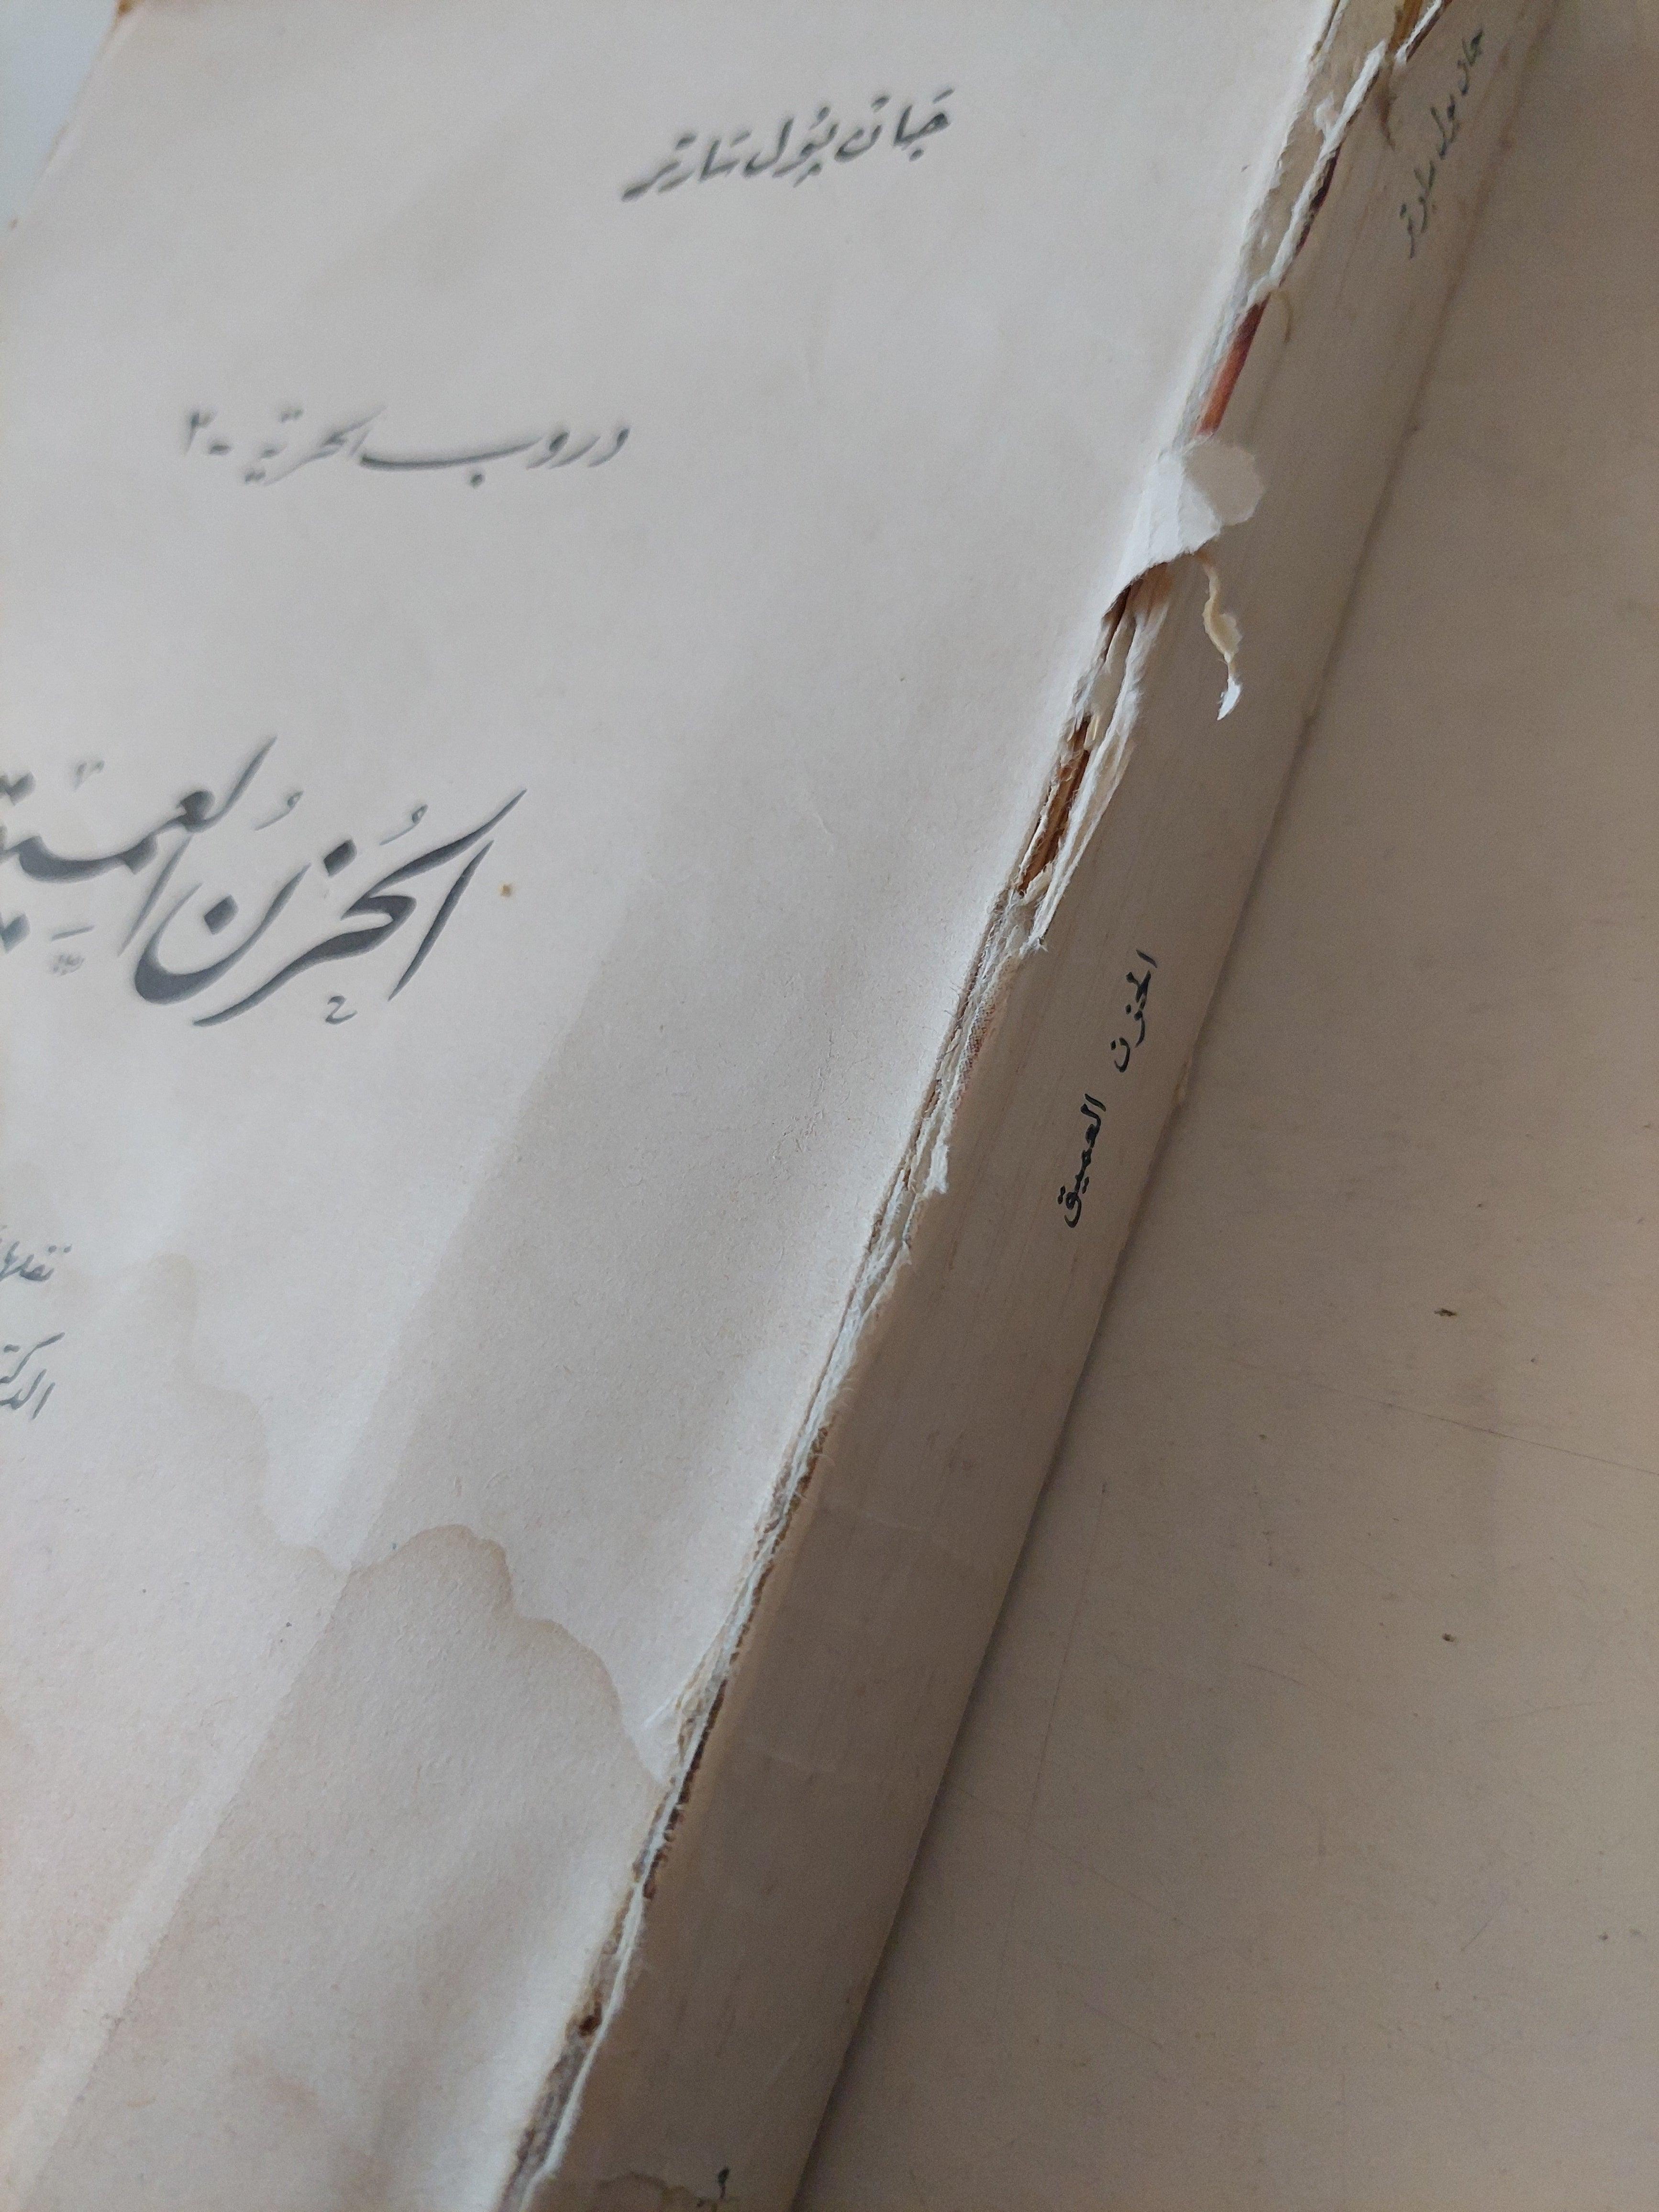 جَان پُول سَارتر
دروب الحرية - ٣
الحُزنُ العَمِيق
نقلها
جان بول سارتر
الحزن العميق